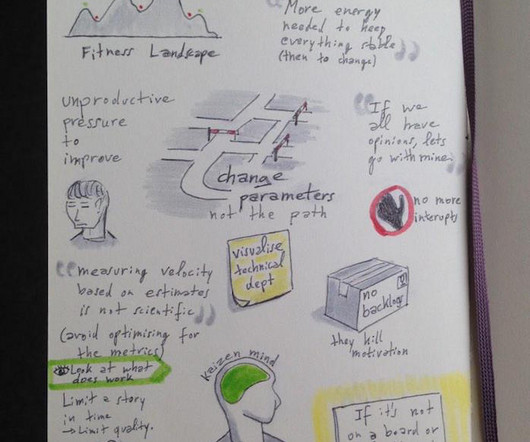 Fitness Landscape
"More energy
needed to keep
everything stable
(then to change)"
unproductive
pressure
to
improve
change
parameters
not the path
"If we
all have
opinions, lets
go with mine"
no more
interupts
visualise
technical
dept
no
backlogs
they kill
motivation
"measuring velocity
based on estimates
is not scientific"
(avoid optimising for
the metrics)
Look at what
does work
Limit a story
in time
→ Limit quality.
keizen mind
If it's not
on a board or